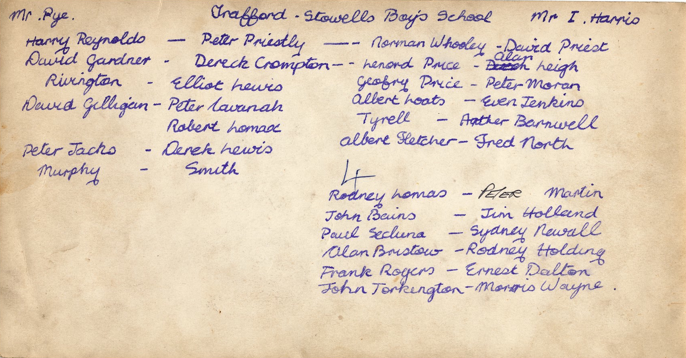 Mr. Pye. Trafford - Stowells Boy's School Mr I. Harris
Harry Reynolds — Peter Priestly —-- Norman Whooley - David Priest
David Gardner - Dereck Crompton -- Lenord Price - Alan Leigh
Rivington - Elliot Lewis Geofry Price - Peter Moran
David Gilligan - Peter Cavanah Albert Loots - Even Jenkins
Robert Lomax Tyrell - Arther Barnwell
Peter Jacks - Derek Lewis Albert Fletcher - Fred North
Murphy - Smith
4
Rodney Lomas - PETER Martin
John Bains - Jim Holland
Paul Secluna - Sydney Newall
Alan Bristow - Rodney Holding
Frank Rogers - Ernest Dalton
John Torkington - Morris Wayne.